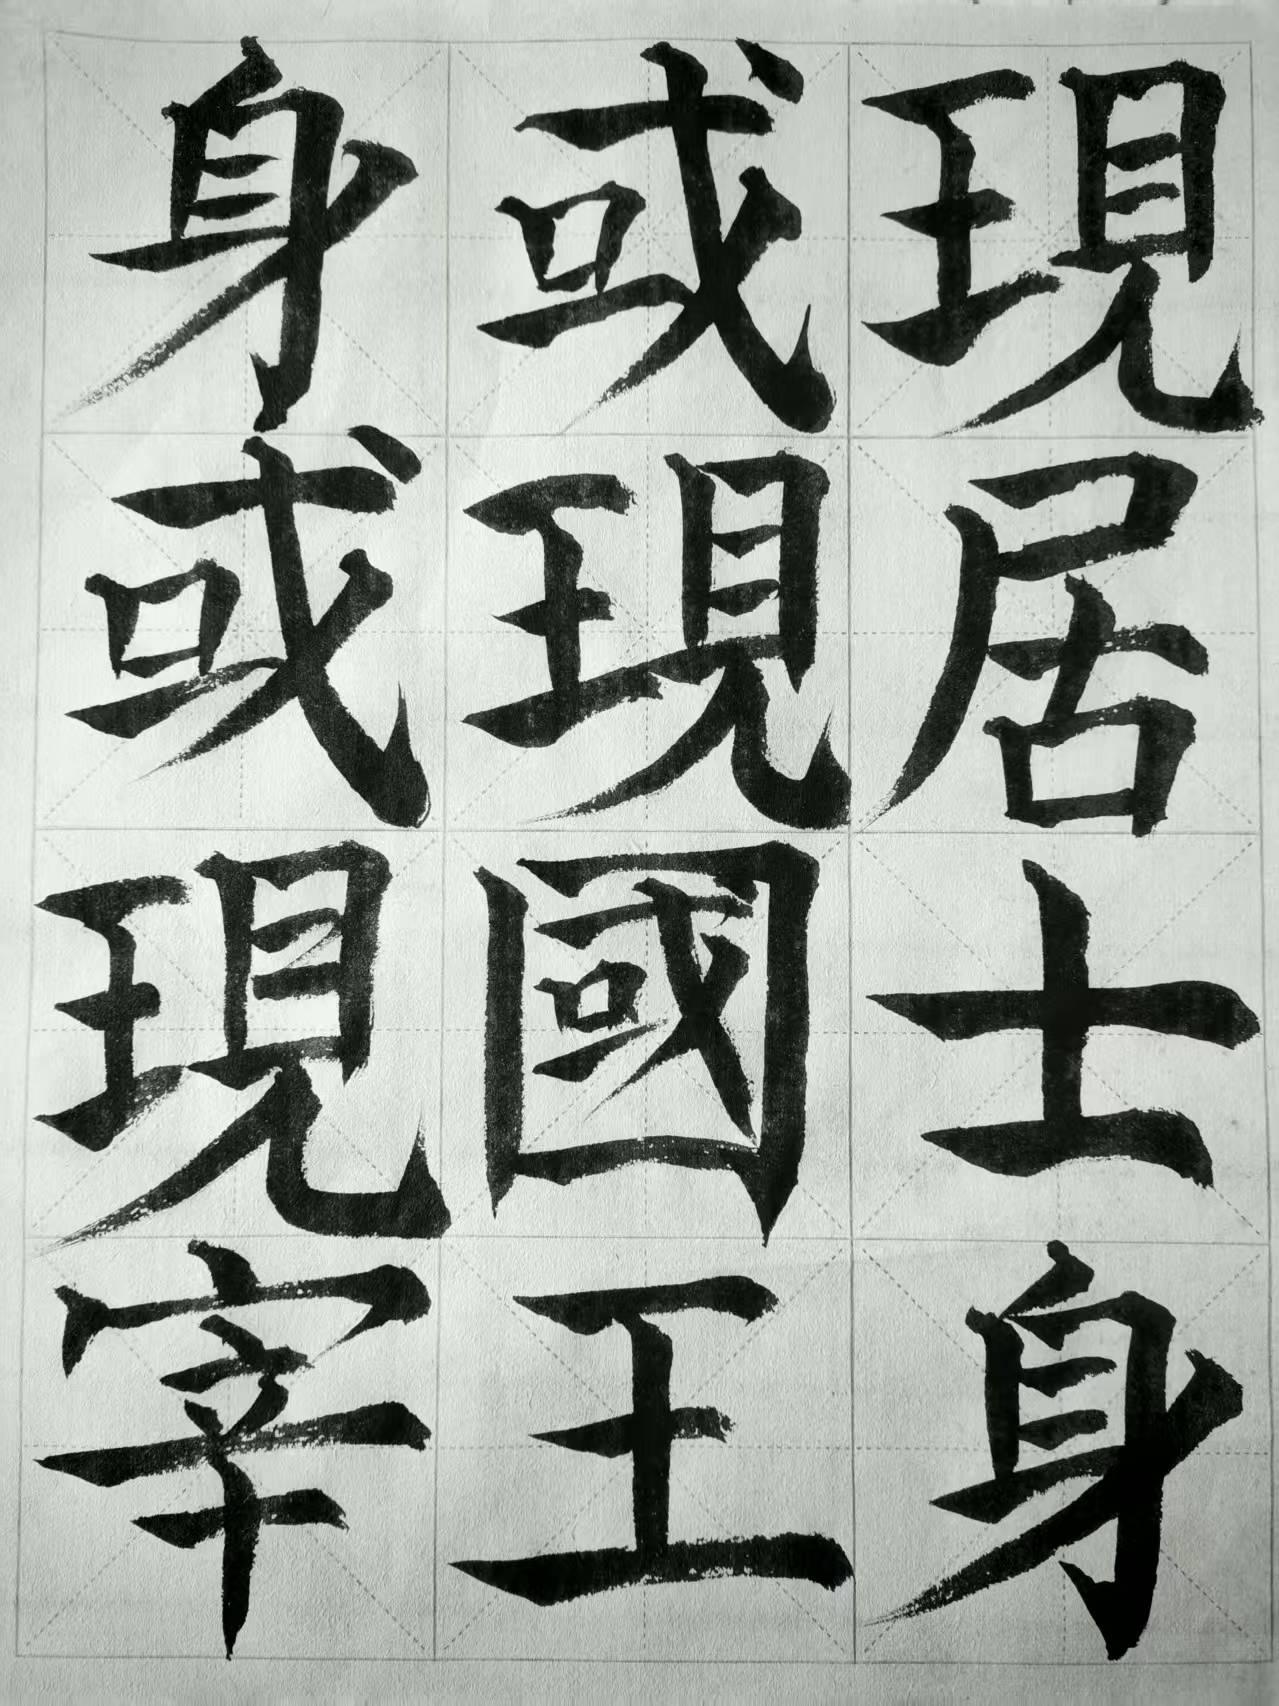 現居士身
或現國王
身或現宰